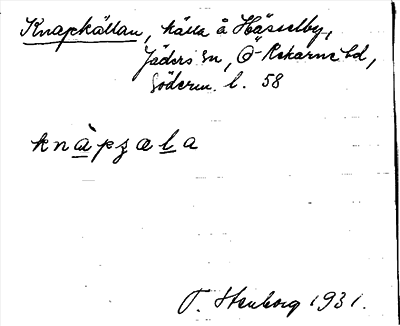 Knapkällan, källa å Hässelby,
Jäders sn, Ö-Rekarne hd,
Söderm. l. 58
knàpʒæla
T. Stenborg 1931.